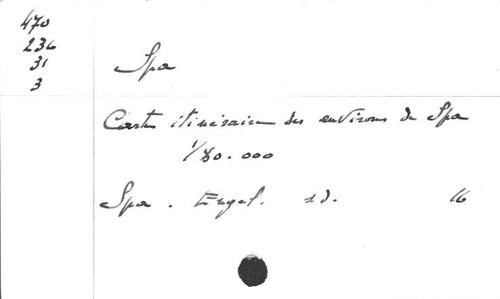 470
236
31
3
Spa
Carte itinéraire des environs de Spa
1/80.000
Spa. Engel. s.d. 16